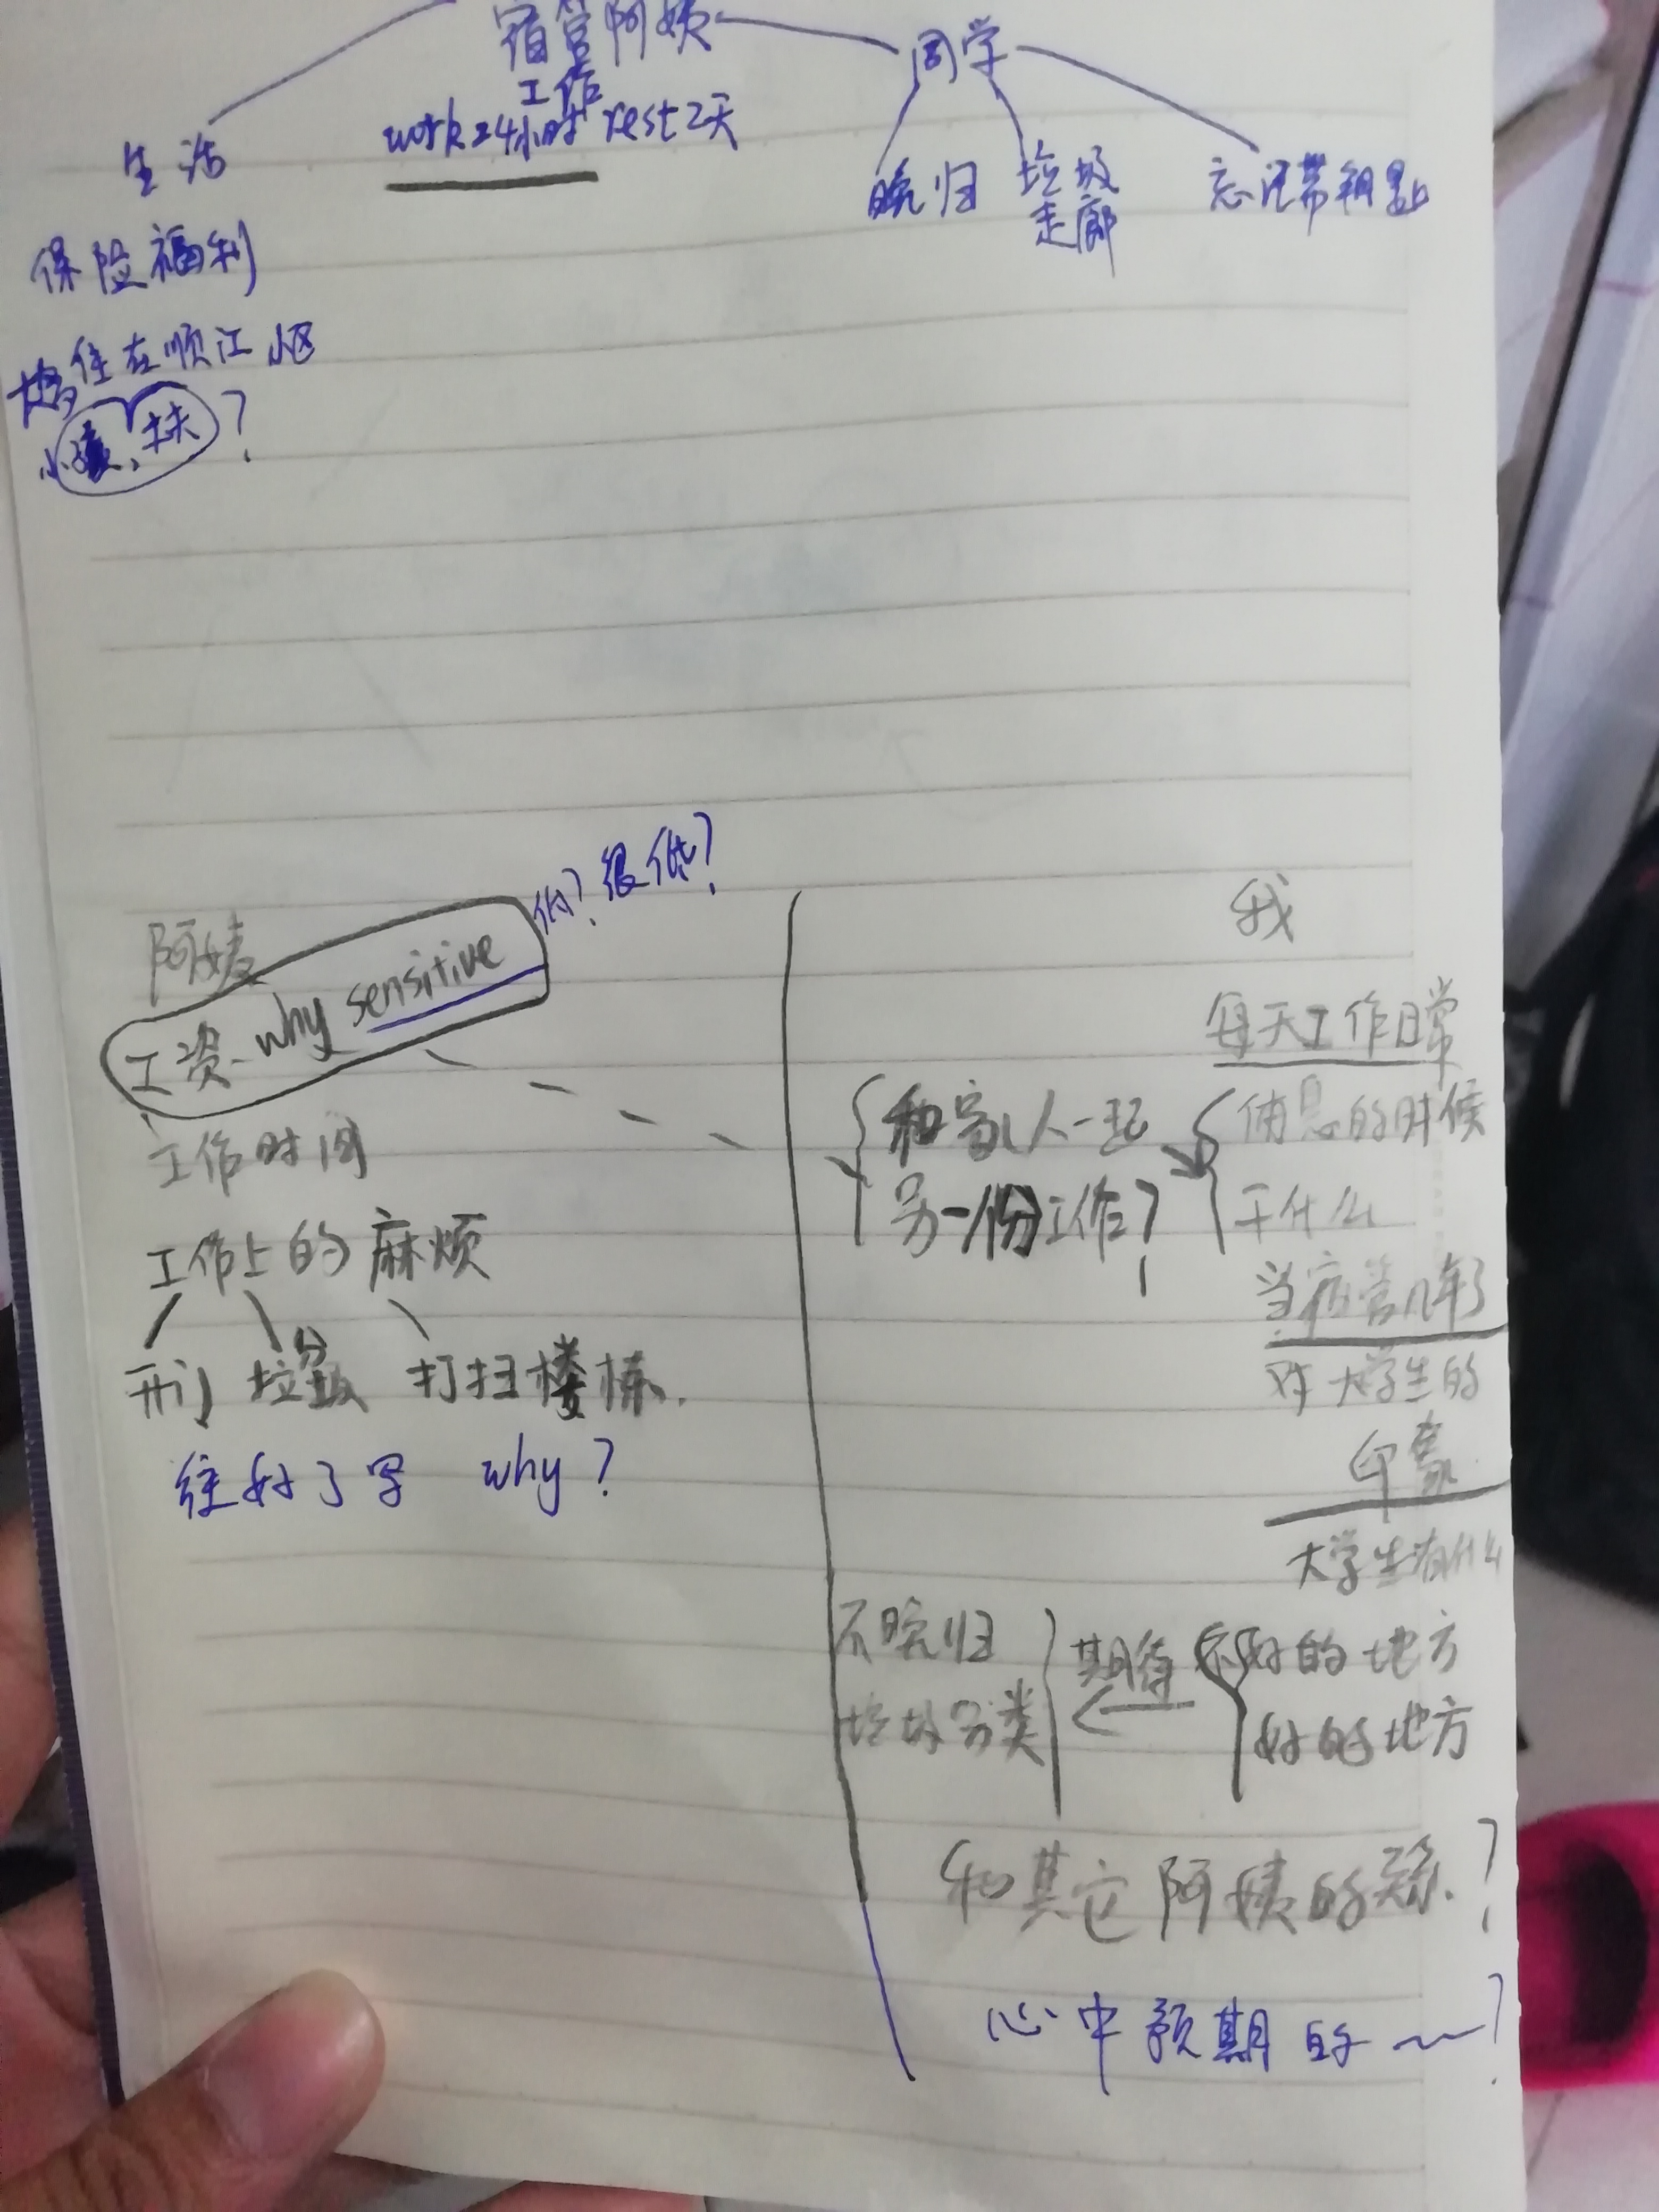 宿管阿姨
工作
同学
生活
work 24小时 rest 2天
晚归
垃圾
走廊
忘记带钥匙
保险福利
住在顺江小区
小孩,丈夫?
低?很低?
阿姨
我
工资 why sensitive
每天工作日常
工作时间
和家人一起
另一份工作?
休息的时候
干什么
工作上的麻烦
当宿管几年了
开门
垃圾
分
打扫楼栋.
对大学生的
印象
往好了写 why?
大学生有什么
不晚归
垃圾分类
期待
不好的地方
好的地方
和其它阿姨的关系?
心中预期的~?